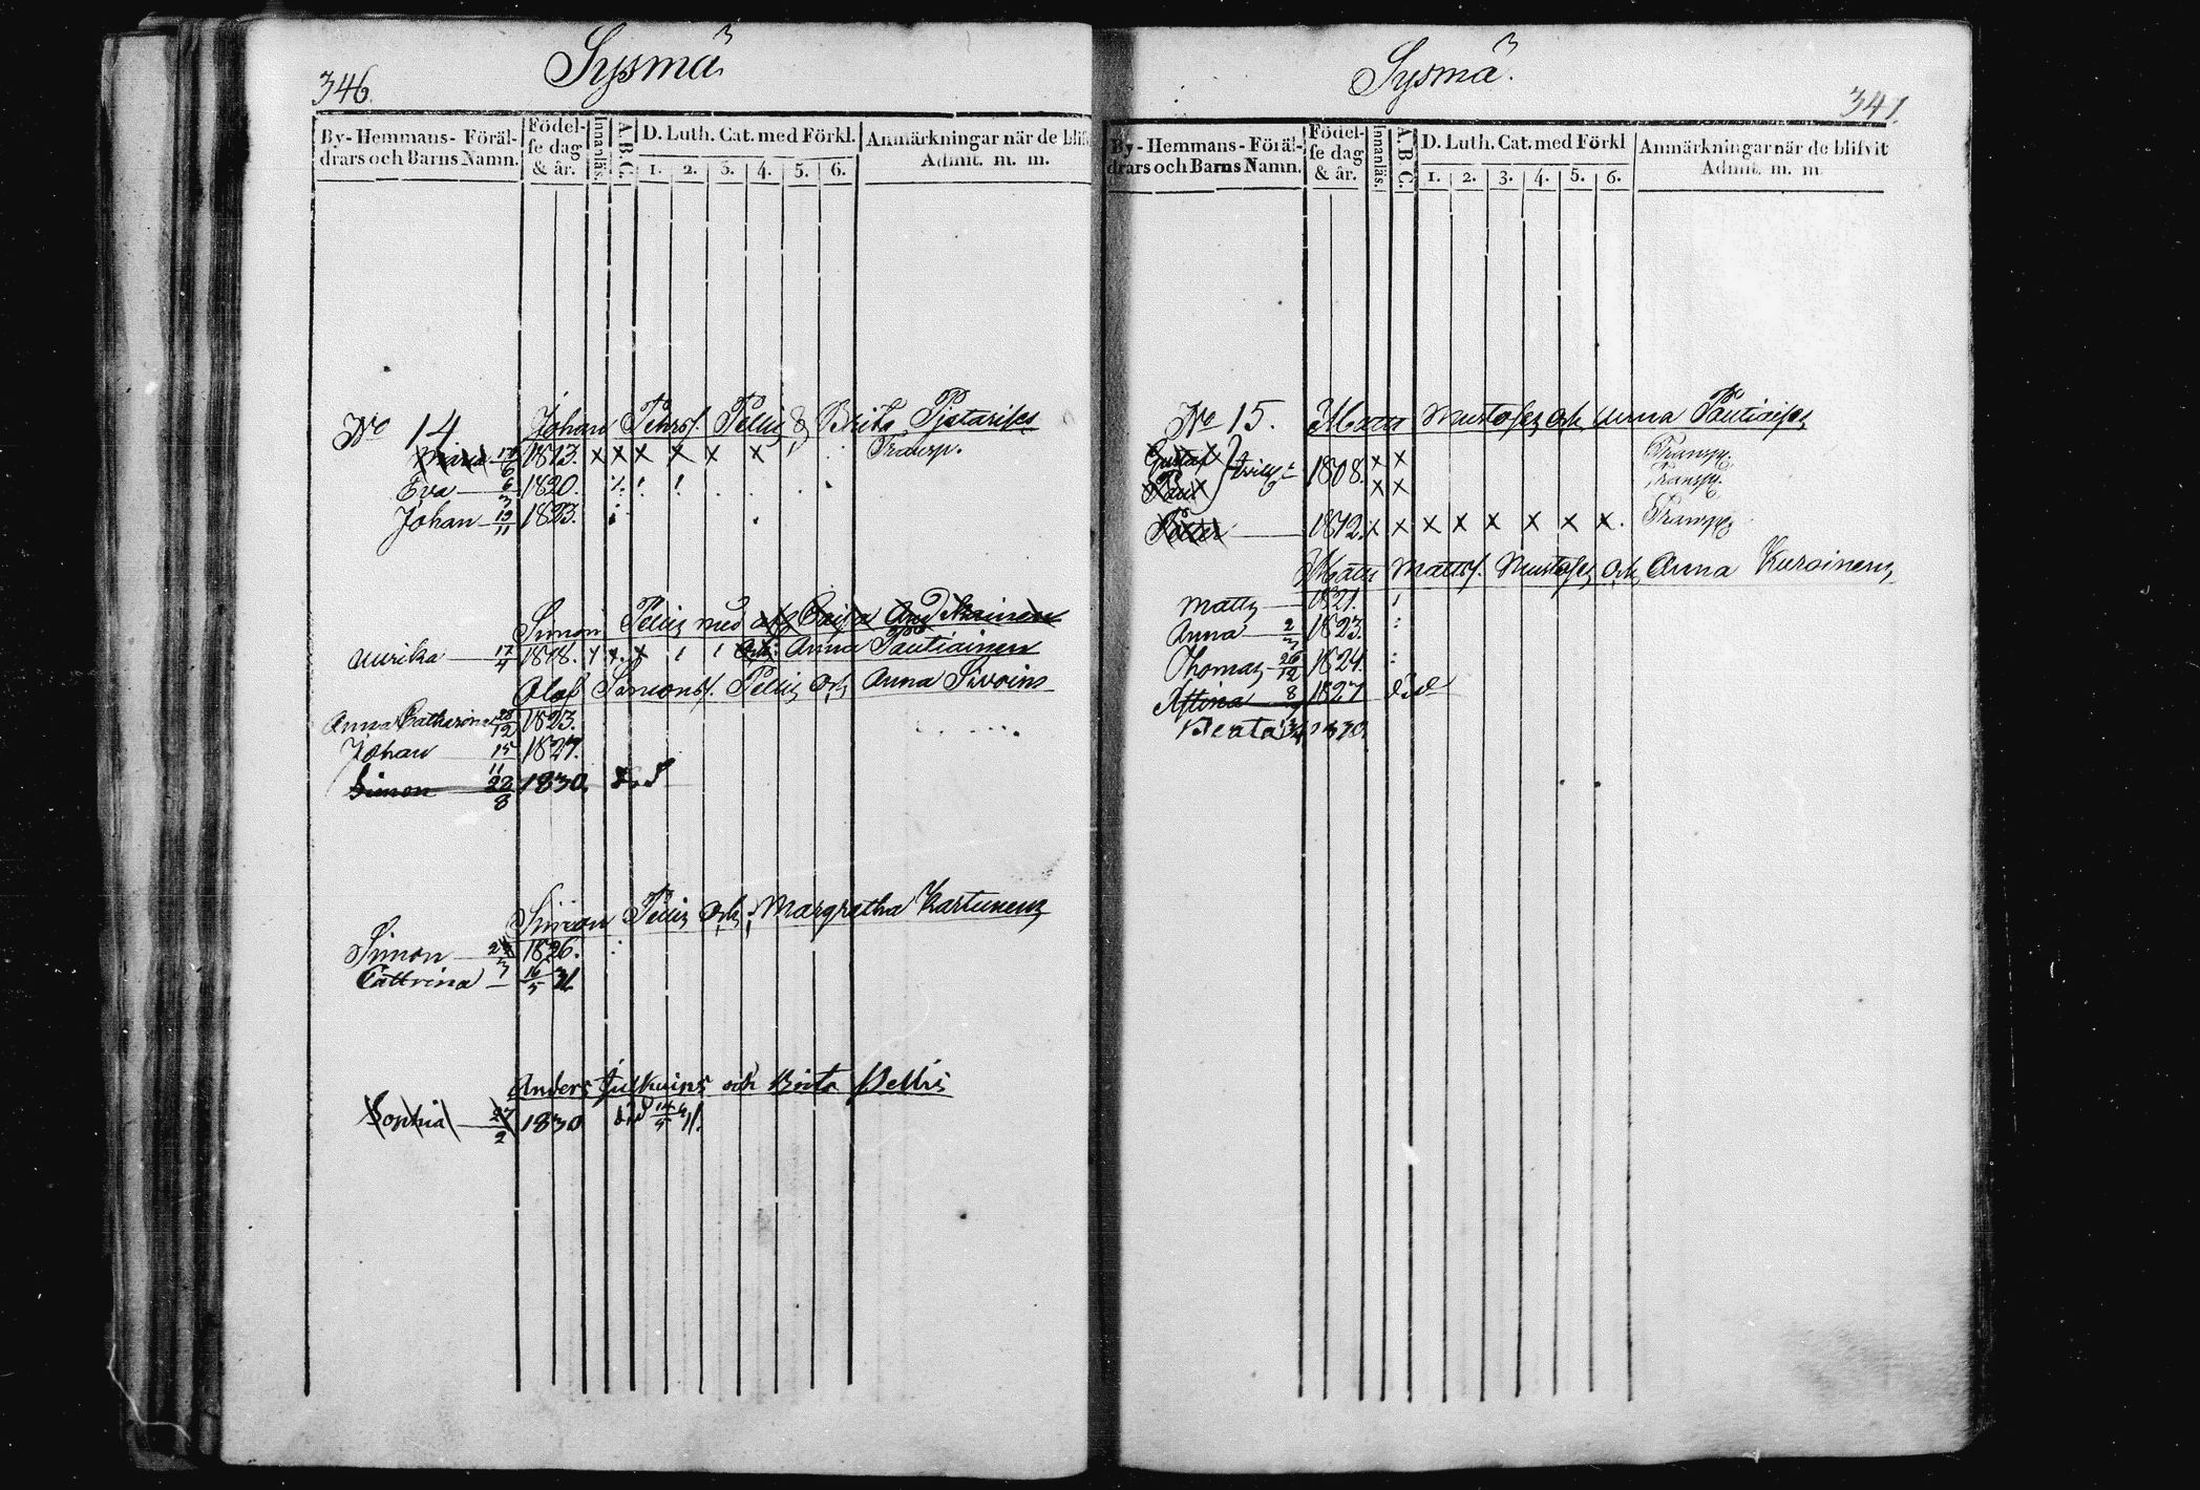 346.
Sysmä
By-Hemmans-Föräl-
drars och Barns Namn.
Födel-
se dag
& år.
Innanläs.
A. B. C.
D. Luth. Cat. med Förkl.
1. 2. 3. 4. 5. 6.
Anmärkningar när de blifv
Admit. m. m.
No 14 Johan Pehrs. Pellis & Brita
Maria 1813. x x x x x x Transp.
Eva 6/3 1820.
Johan 19/11 1823.
Simon Pellis med
Och Anna Pautiainen
Ulrika 17/4 1818.
Olof Simons. Pellis Och Anna
Anna Catharina 28/12 1823.
Johan 15/11 1827.
Simon 22/8 1830, död
Simon Pellis Och Margretha Kartunen
Simon 1826.
Cattrina 16/5 31
Anders och Brita Pellis
Sophia 27/2 1830 död 14/5 31.
Sysmä.
347.
By-Hemmans-Föräl-
drars och Barns Namn.
Födel-
se dag
& år.
Innanläs.
A. B. C.
D. Luth. Cat. med Förkl
1. 2. 3. 4. 5. 6.
Anmärkningar när de blifvit
Admit. m. m
No 15. Matts Och Anna
Gustaf 1808. x x Transp.
Paul x x Transp.
1812. x x x x x x x x. Transp
Matts Matts. Och Anna Kuroinen
Matts 1821.
Anna 2/3 1823.
Thomas 26/12 1824.
8 1827 död
Beata 1830.